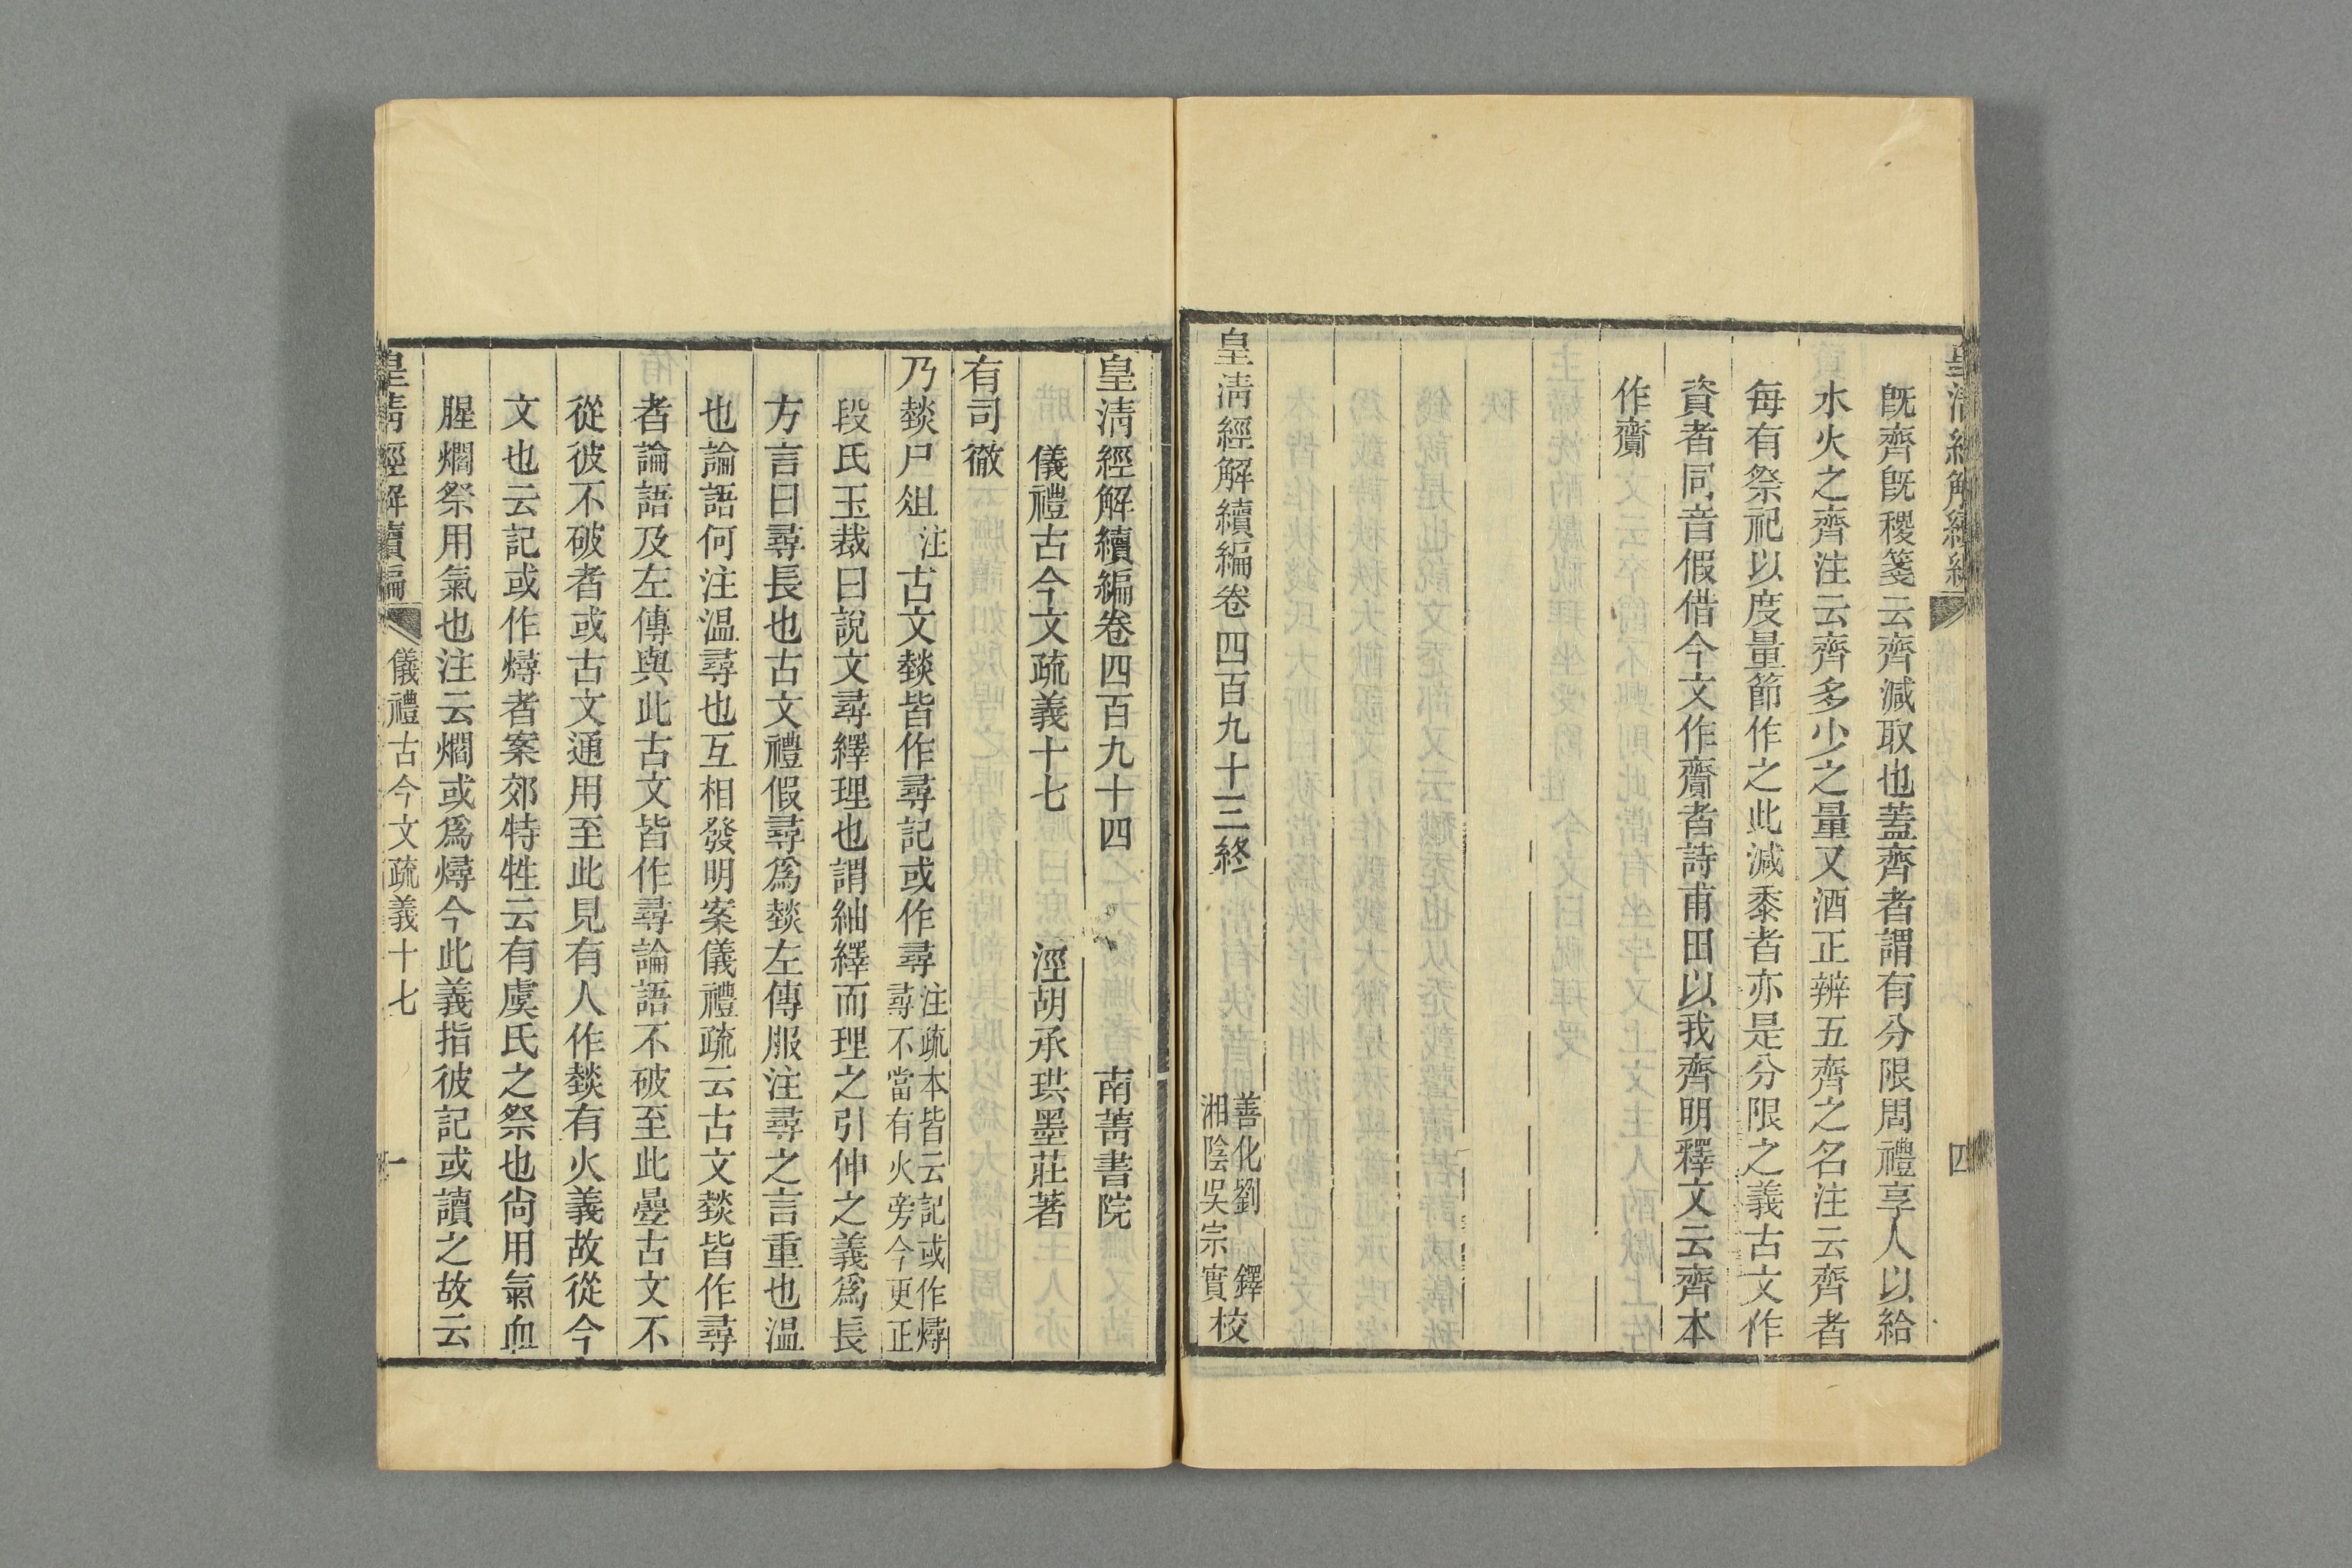 既齊既稷箋云齊減取也蓋齊者謂有分限周禮亨人以給
水火之齊注云齊多少之量又酒正辨五齊之名注云齊者
每有祭祀以度量節作之此減黍者亦是分限之義古文作
資者同音假借今文作齎者詩甫田以我齊明釋文云齊本
作齎
皇清經解續編卷四百九十三終
善化劉鐸
湘陰吳宗實校
皇清經解續編卷四百九十四
南菁書院
儀禮古今文疏義十七
涇胡承珙墨莊著
有司徹
乃燅尸俎注古文燅皆作尋記或作尋
注疏本皆云記或作燖
尋不當有火旁今更正
段氏玉裁曰說文尋繹理也謂紬繹而理之引伸之義爲長
方言曰尋長也古文禮假尋爲燅左傳服注尋之言重也温
也論語何注温尋也互相發明案儀禮疏云古文燅皆作尋
者論語及左傳與此古文皆作尋論語不破至此疊古文不
從彼不破者或古文通用至此見有人作燅有火義故從今
文也云記或作燖者案郊特牲云有虞氏之祭也尙用氣血
腥爓祭用氣也注云爓或爲燖今此義指彼記或讀之故云
皇清經解續編
儀禮古今文疏義十七
一